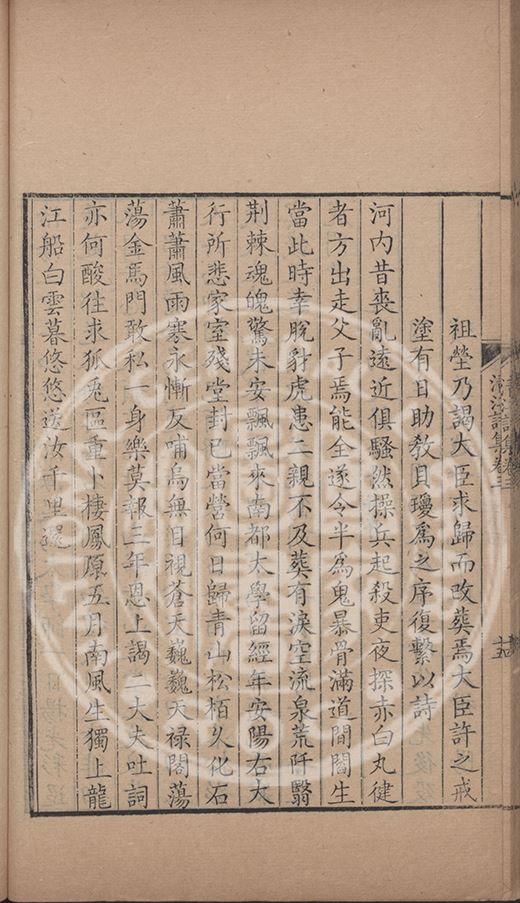 祖塋乃謁大臣求歸而改葬焉大臣許之戒
塗有日助教貝瓊爲之序復繫以詩
河内昔喪亂遠近俱騷然操兵起殺吏夜探赤白丸健
者方出走父子焉能全遂令半爲鬼暴骨滿道間閽生
當此時幸脫豺虎患二親不及葬有淚空流泉荒阡翳
荆棘魂魄驚未安飄飄來南都太學留經年安陽右大
行所悲家室殘堂封已當營何日歸青山松栢久化石
蕭蕭風雨寒永慚反哺烏無目視蒼天巍巍天禄閣蕩
蕩金馬門敢私一身樂莫報三年恩上謁二大夫吐詞
亦何酸往求狐兎區重卜棲鳳原五月南風生獨上龍
江船白雲暮悠悠送汝千里還
清江詩集卷三